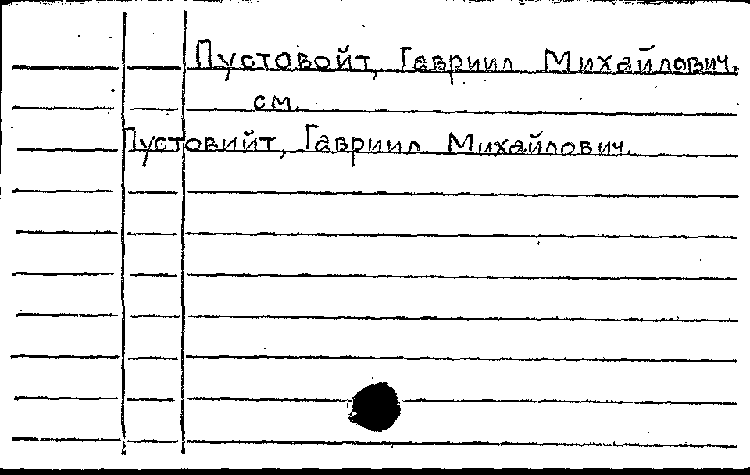 Пустовойт, Гавриил Михайлович.
см.
Пустовийт, Гавриил Михайлович.